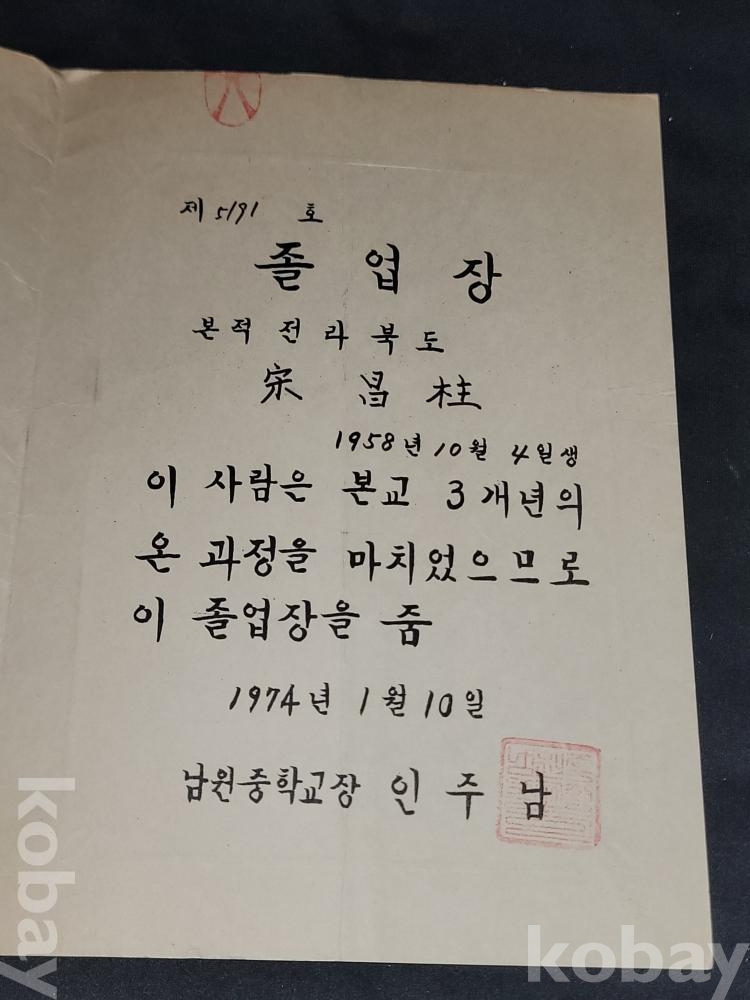 제 5191 호
졸업장
본적 전라북도
宋昌柱
1958년 10월 4일생
이 사람은 본교 3개년의
온 과정을 마치었으므로
이 졸업장을 줌
1974년 1월 10일
남원중학교장 인주남
kobay
kobay